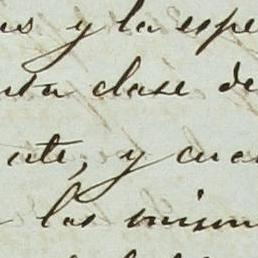 as y la espe
nta clase de
ate, y cua
las mism